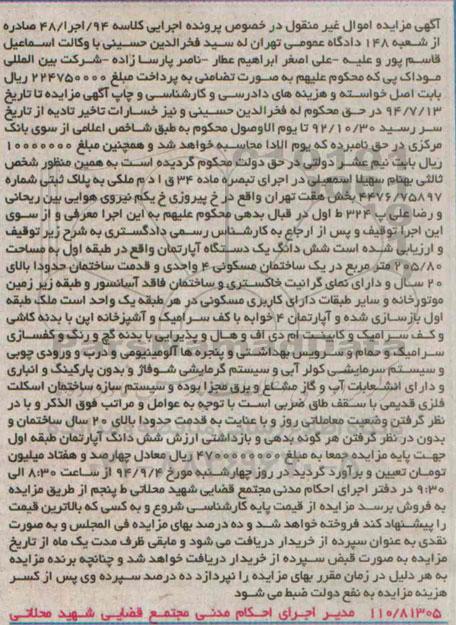 آگهی مزایده اموال غیر منقول در خصوص پرونده اجرایی کلاسه ۹۴/اجرا/۴۸ صادره
از شعبه ۱۴۸ دادگاه عمومی تهران له سید فخرالدین حسینی با وکالت اسماعیل
قاسم پور و علیه -علی اصغر ابراهیم عطار -ناصر پارسا زاده -شرکت بین المللی
موداک پی که محکوم علیهم به صورت تضامنی به پرداخت مبلغ ۲۲۴۷۵۰۰۰۰ ریال
بابت اصل خواسته و هزینه های دادرسی و کارشناسی و چاپ آگهی مزایده تا تاریخ
۹۴/۷/۱۳ در حق محکوم له فخرالدین حسینی و نیز خسارات تاخیر تادیه از تاریخ
سر رسید ۹۲/۱۰/۳۰ تا یوم الاوصول محکوم به طبق شاخص اعلامی از سوی بانک
مرکزی در حق نامبرده که یوم الادا محاسبه خواهد شد و همچنین مبلغ ۱۰۰۰۰۰۰۰
ریال بابت نیم عشر دولتی در حق دولت محکوم گردیده است به همین منظور شخص
ثالثی بهنام سهیلا اسمعیلی در اجرای تبصره ماده ۳۴ ق ا م ملکی به پلاک ثبتی شماره
۴۴۷۶/۷۵۸۹۷ بخش هفت تهران واقع در خ پیروزی خ یکم نیروی هوایی بین ریحانی
و رضا علی پ ۳۲۴ ط اول در قبال بدهی محکوم علیهم به این اجرا معرفی و از سوی
این اجرا توقیف و پس از ارجاع به کارشناس رسمی دادگستری به شرح زیر توقیف
و ارزیابی شده است شش دانگ یک دستگاه آپارتمان واقع در طبقه اول به مساحت
۲۰۵/۸۰ متر مربع در یک ساختمان مسکونی ۴ واحدی و قدمت ساختمان حدودا بالای
۲۰ سال و دارای نمای گرانیت خاکستری و ساختمان فاقد آسانسور و طبقه زیر زمین
موتورخانه و سایر طبقات دارای کاربری مسکونی در هر طبقه یک واحد است ملک طبقه
اول بازسازی شده و آپارتمان ۴ خوابه با کف سرامیک و آشپزخانه اپن با بدنه کاشی
و کف سرامیک و کابینت ام دی اف و هال و پذیرایی با بدنه گچ و رنگ و کفسازی
سرامیک و حمام و سرویس بهداشتی و پنجره ها آلومینیومی و درب و ورودی چوبی
و سیستم سرمایشی کولر آبی و سیستم گرمایشی شوفاژ و بدون پارکینگ و انباری
و دارای انشعابات آب و گاز مشاع و برق مجزا بوده و سیستم سازه ساختمان اسکلت
فلزی قدیمی با سقف طاق ضربی است با توجه به عوامل و مراتب فوق الذکر و با در
نظر گرفتن وضعیت معاملاتی روز و با عنایت به قدمت حدودا بالای ۲۰ سال ساختمان و
بدون در نظر گرفتن هر گونه بدهی و بازداشتی ارزش شش دانگ آپارتمان طبقه اول
جهت پایه مزایده جمعا به مبلغ ۴۷۰۰۰۰۰۰۰۰ ریال معادل چهارصد و هفتاد میلیون
تومان تعیین و برآورد گردید در روز چهارشنبه مورخ ۹۴/۹/۴ از ساعت ۸:۳۰ الی
۹:۳۰ در دفتر اجرای احکام مدنی مجتمع قضایی شهید محلاتی ط پنجم از طریق مزایده
به فروش برسد مزایده از قیمت پایه کارشناسی شروع و به کسی که بالاترین قیمت
را پیشنهاد کند فروخته خواهد شد و ده درصد بهای مزایده فی المجلس و به صورت
نقدی به عنوان سپرده از خریدار دریافت می شود و مابقی ظرف مدت یک ماه از تاریخ
مزایده به صورت قبض سپرده از خریدار دریافت خواهد شد و چنانچه برنده مزایده
به هر دلیل در زمان مقرر بهای مزایده را نپردازد ده درصد سپرده وی پس از کسر
هزینه مزایده به نفع دولت ضبط می شود
۱۱۰/۸۱۳۰۵ مدیر اجرای احکام مدنی مجتمع قضایی شهید محلاتی